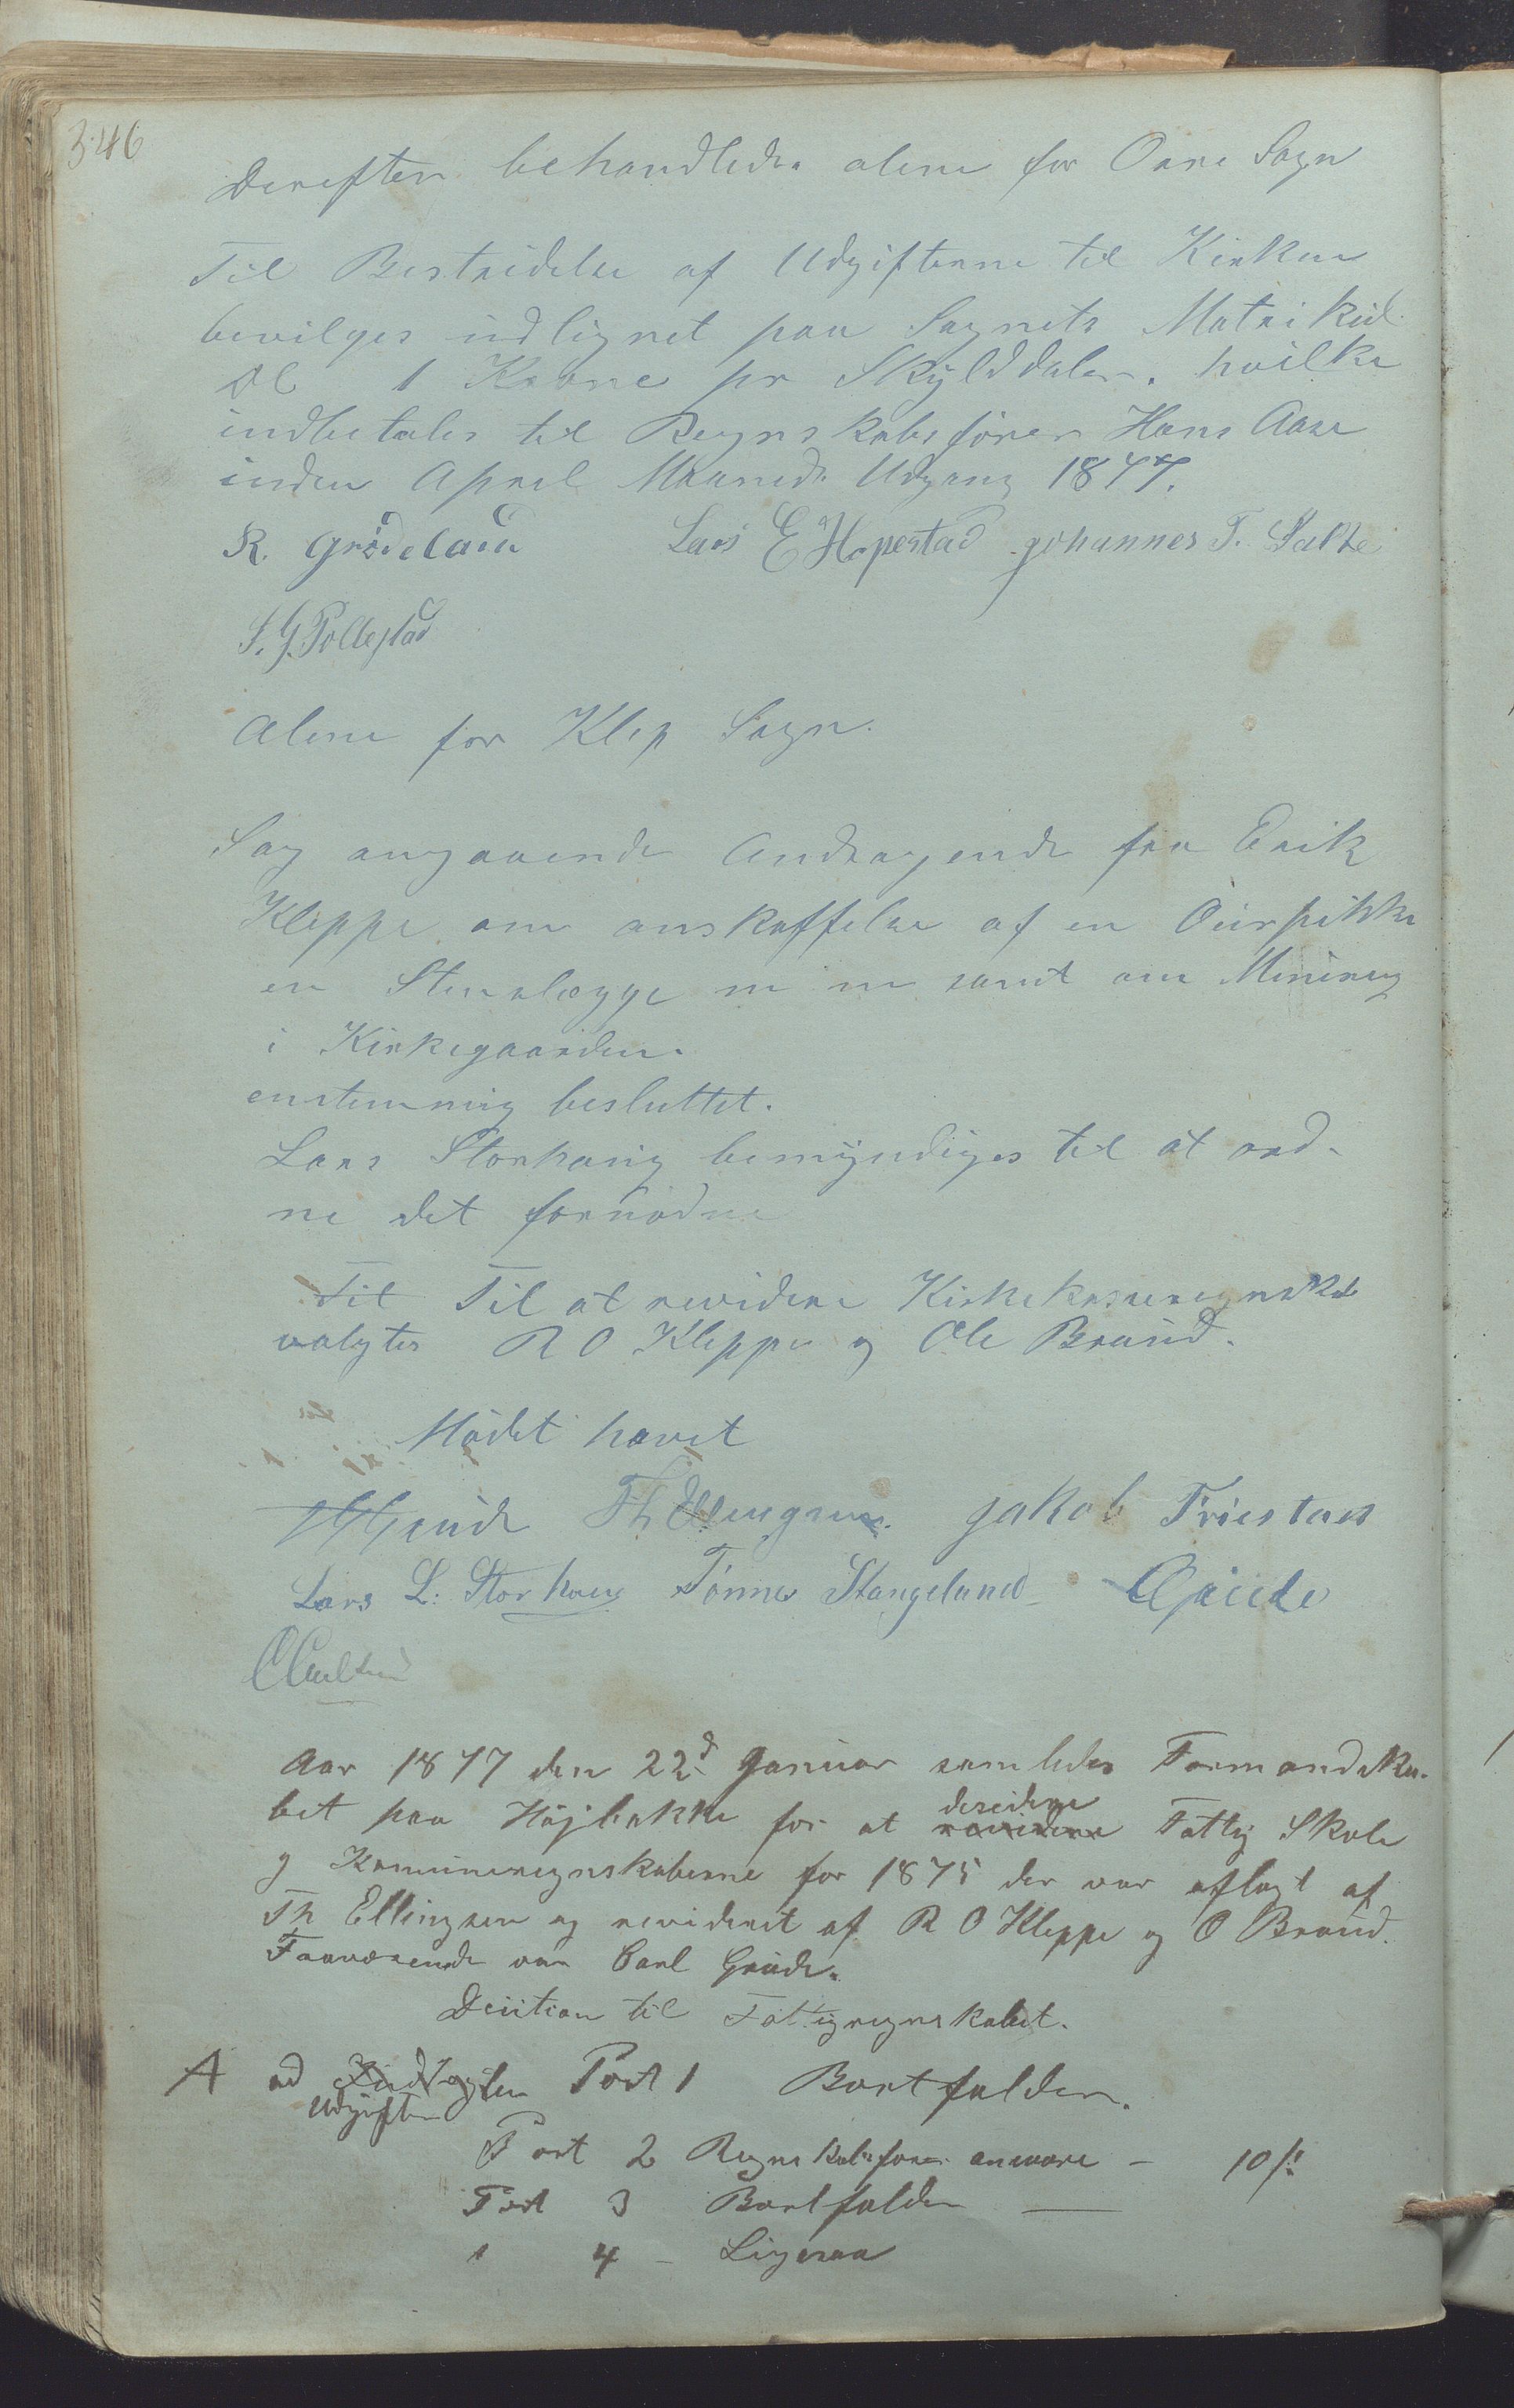 346
Derefter behandledes alene for Orre Sogn
Til Bestridelse af Udgifterne til Kirken
bevilges udlignet paa Sognets Matrikul
1 Krone pr Skylddaler. hvilke
indbetales til Regnskabsfører Hans Aase
inden April Maaneds Udgang 1877.
R. Grödeland Lars E Hapestad Johannes T. Salte
S. G. Pollestad
Alene for Klep Sogn.
Sag angaaende Andragende fra Erik
Kleppe om anskaffelse af en
en Stenslægge m m samt om Minering
i Kirkegaarden.
enstemmig besluttet.
Lars Storhaug bemyndiges til at ord-
ne det fornødne
Til Til at revidere Kirkekasseregnskab
valgtes R O Kleppe og Ole Braud.
Mödet hævet
Grude Th Ellingsen. Jakob Friestad
Lars L. Storhaug Tönnes Stangeland
Aar 1877 den 22d Januar samledes Formandska-
bet paa Højbakke for at revidere desidere Fattig Skole
g Komuneregnskaberne for 1875 der var aflagt af
Th Ellingsen og revideret af R O Kleppe og O Braud.
Fraværende var Carl Grude.
Decition til Fattigregnskabet.
A ad Indtægten Post 1 Bortfalder.
Udgiften
Post 2 Regnskabsfører ansvare - 10 s
Post 3 Bortfalder
" 4 - Ligesaa